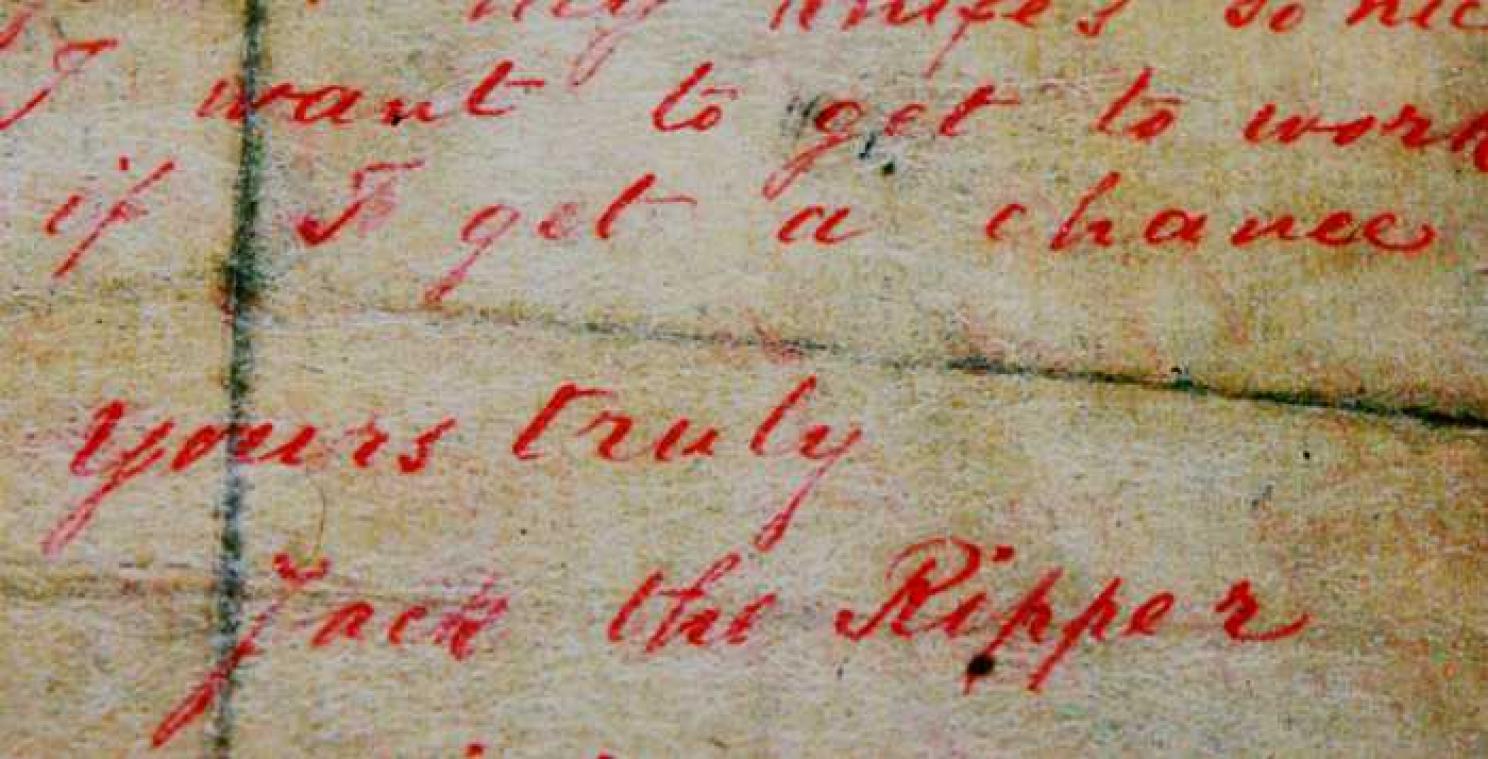 my knife's so nic
I want to get to work
if I get a chance
yours truly
Jack the Ripper